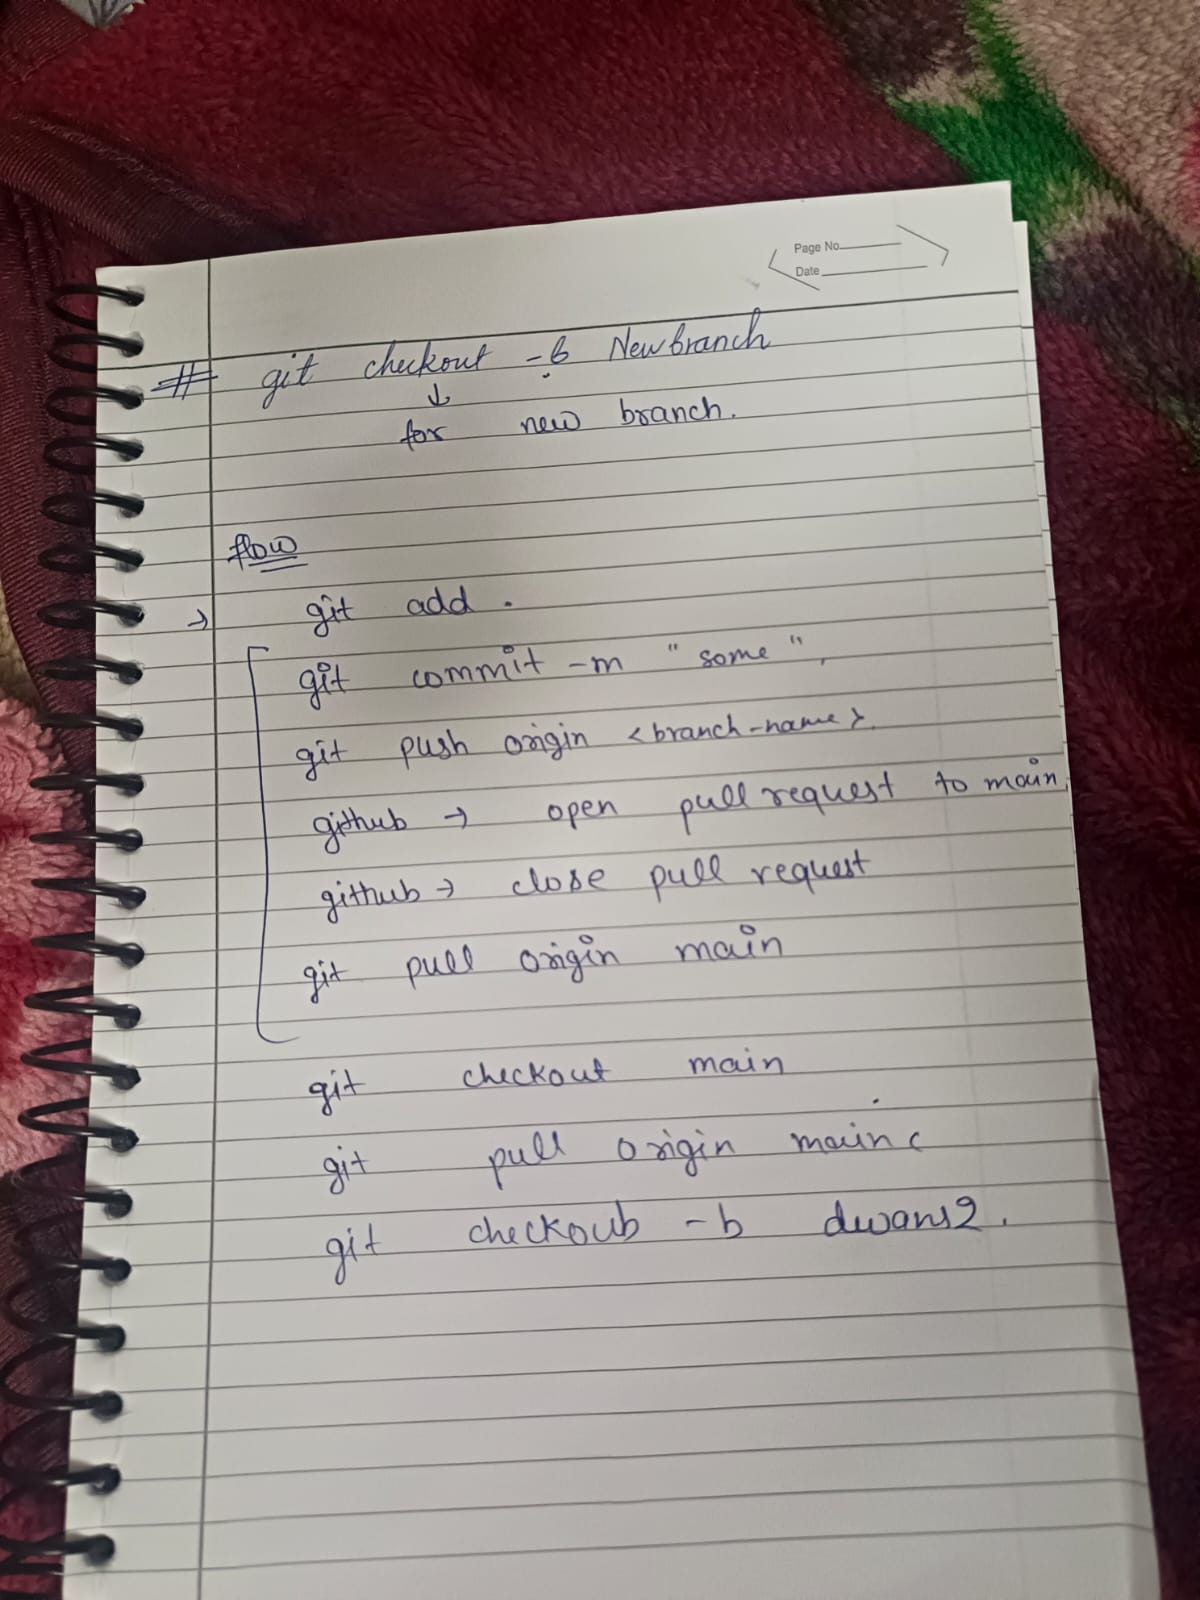 Page No.
Date
# git checkout -b Newbranch
↓
for new branch.
flow
→ git add .
git commit -m "some",
git push origin <branch-name>.
github → open pull request to main.
github → close pull request
git pull origin main
git checkout main
git pull origin main
git checkoub -b dwans2.